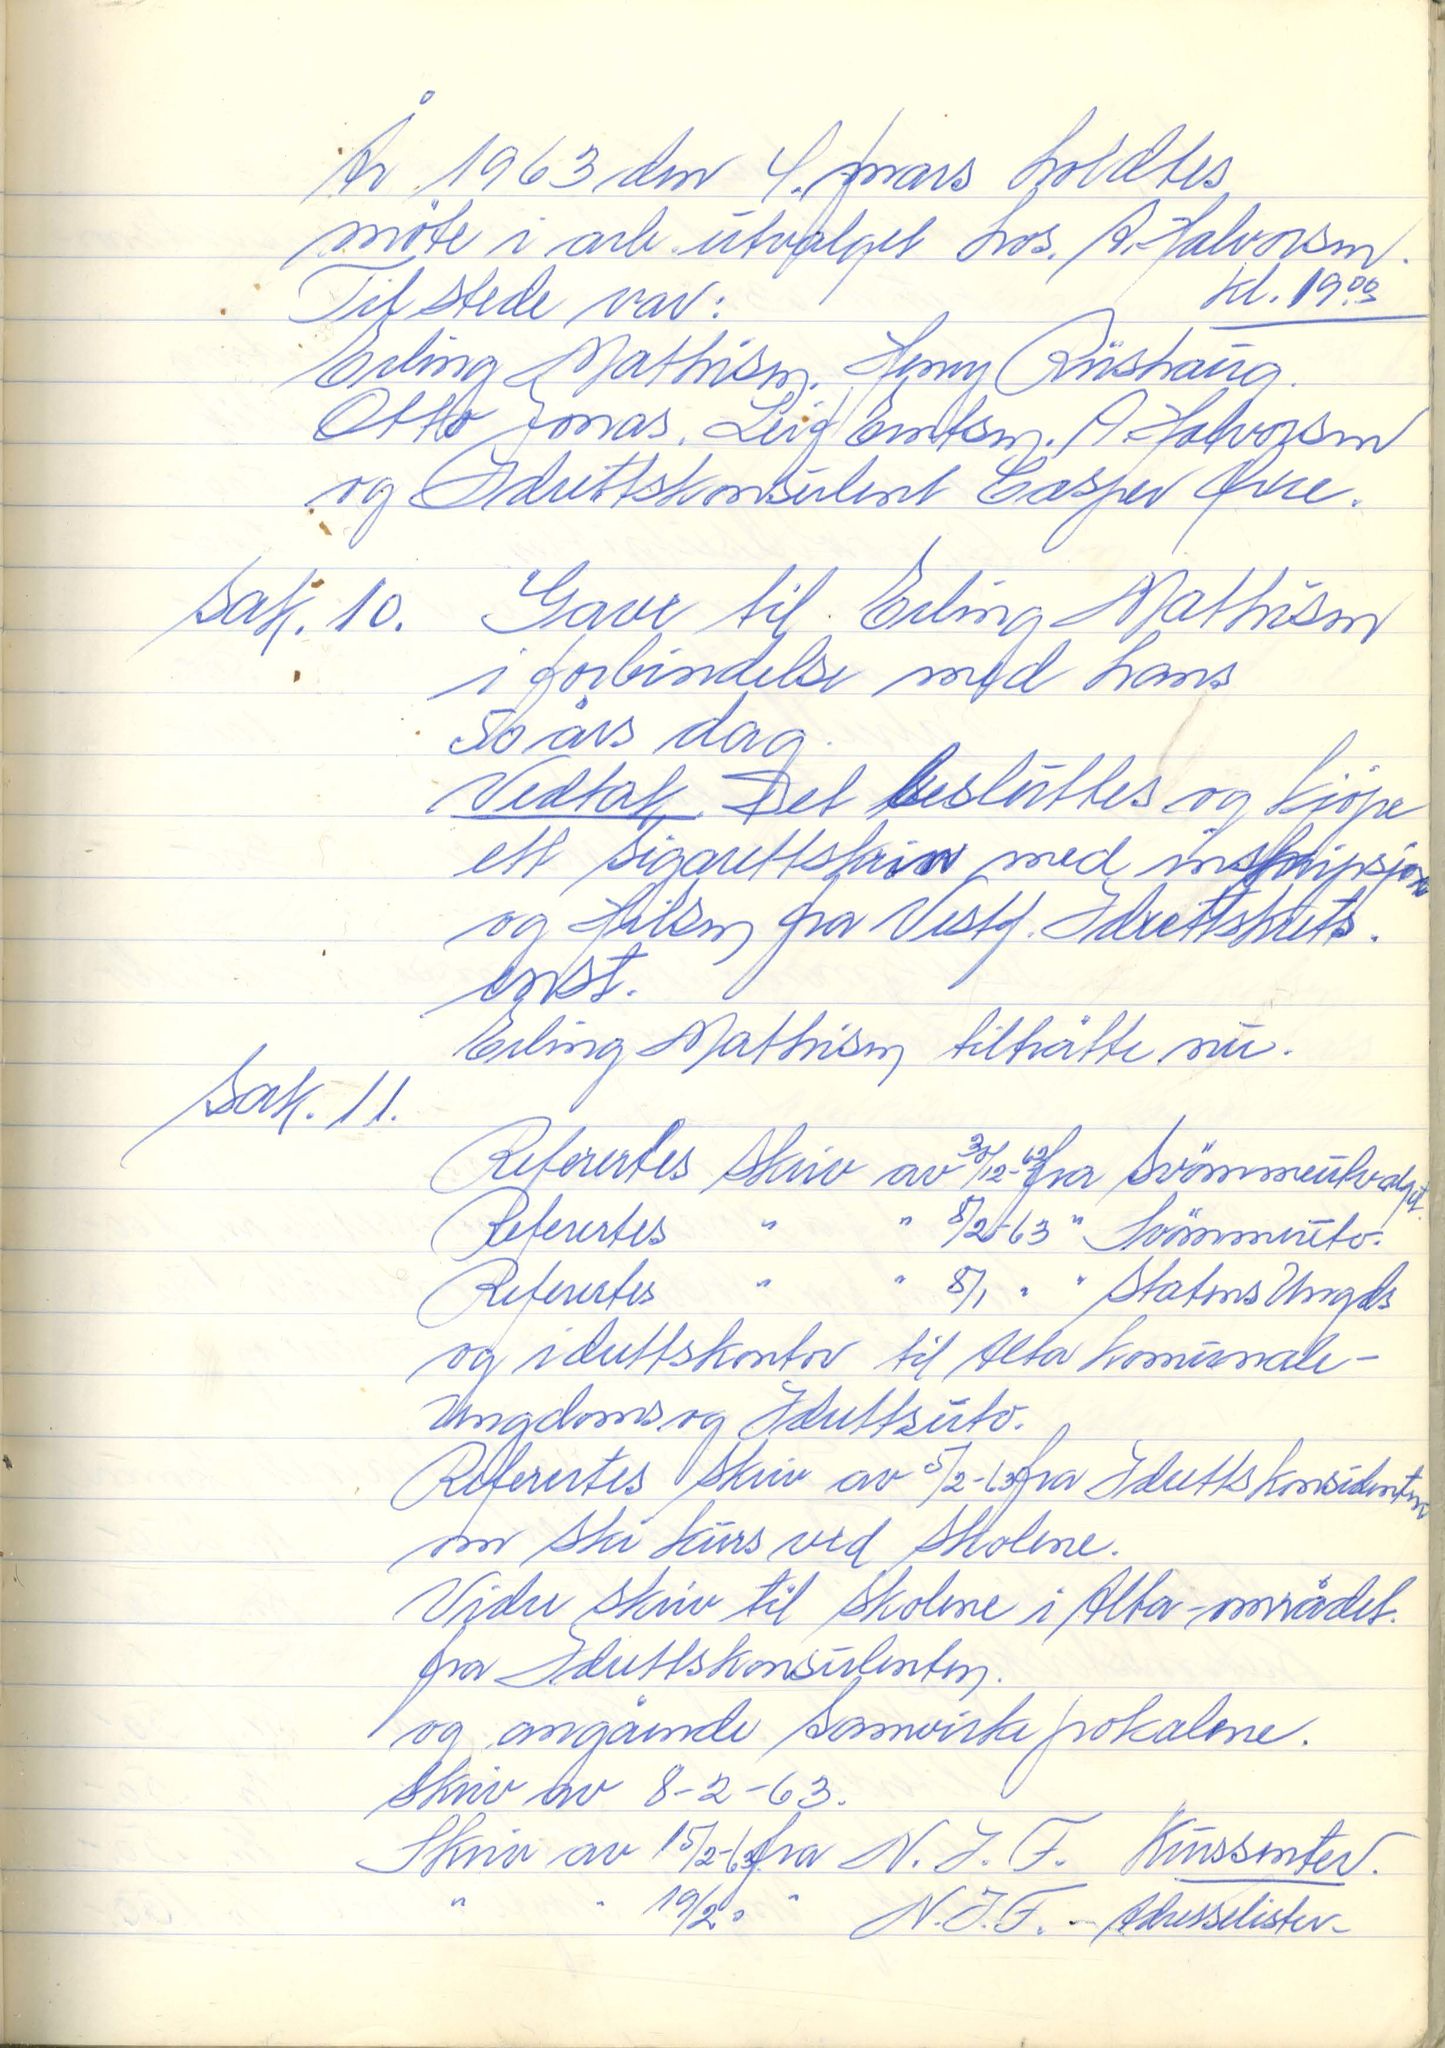 År 1963 den 4. mars holdtes
möte i arb. utvalget hos. A. Halvorsen.
kl. 19⁰⁰
Tilstede var:
Erling Mathisen. Henry Riishaug.
Otto Jonas. Leif Eriksen. A. Halvorsen
og Idrettskonsulent Casper
Sak. 10. Gave til Erling Mathisen
i forbindelse med hans
50 års dag.
Vedtak. Det besluttes og kjöpe
ett sigarettskrin med inskripsjon
og Hilsen fra Vestf. Idrettskrets.
enst.
Erling Mathisen tiltråtte nu.
Sak. 11.
Referertes skriv av 30/12-62 fra Svömmeutvalget.
Referertes " " 8/2-63 " Svömmeutv.
Referertes " " 8/1 " " Statens Ungds
og idrettskontor til Alta Komunale-
Ungdoms og Idrettsutv.
Referertes skriv av 5/2-63 fra Idrettskonsulenten
om ski kurs ved skolene.
Vidre skriv til skolene i Alta-området.
fra Idrettskonsulenten.
og angående Samvirkepokalene.
Skriv av 8-2-63.
Skriv av 15/2-63 fra N.I.F. Kurssenter.
" " 19/2 " " N.I.F. - Adresselister-